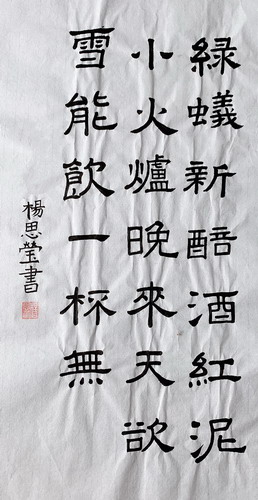 綠蟻新醅酒紅泥
小火爐晚來天欲
雪能飲一杯無
楊思瑩書